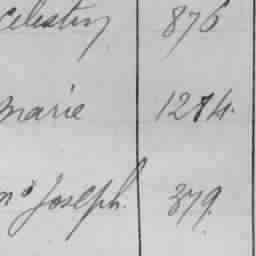 Celestin 876
Marie 1284.
Mª Joseph. 379.